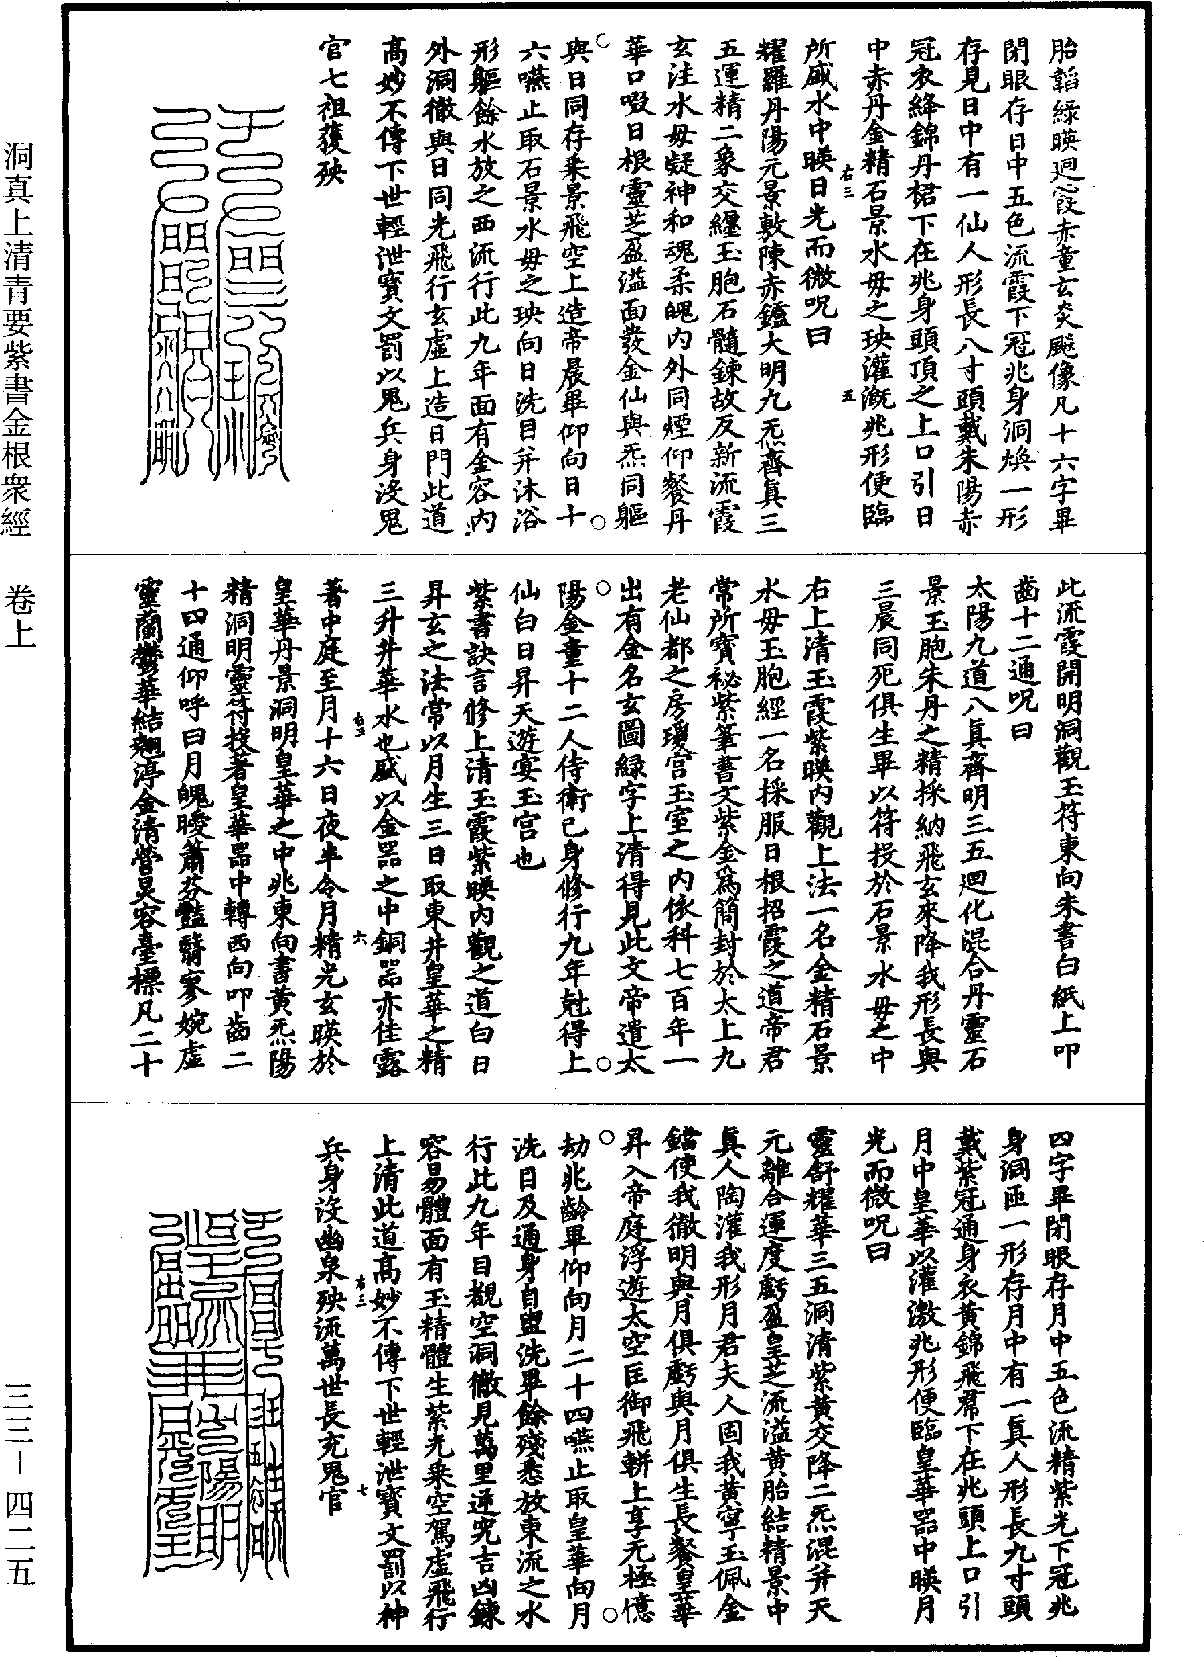 胎韜綠暎迥霞赤童玄炎飈像凡十六字畢
閉眼存日中五色流霞下冠兆身洞煥一形
存見日中有一仙人形長八寸頭戴朱陽赤
冠衣絳錦丹裙下在兆身頭頂之上口引日
中赤丹金精石景水母之玦灌溉兆形便臨
右三 五
所盛水中暎日光而微呪曰
耀羅丹陽元景敷陳赤鑪大明九炁齊真三
五運精二象交纏玉胞石髓鍊故反新流霞
玄注水母凝神和魂柔魄內外同煙仰餐丹
華口啜日根靈芝盈溢面發金仙與炁同軀
與日同存乘景飛空上造帝晨畢仰向日十
六嚥止取石景水母之玦向日洗目并沐浴
形軀餘水放之西流行此九年面有金容內
外洞徹與日同光飛行玄虛上造日門此道
高妙不傳下世輕泄寶文罰以鬼兵身沒鬼
官七祖獲殃
此流霞開明洞觀玉符東向朱書白紙上叩
齒十二通呪曰
太陽九道八真齊明三五迴化混合丹靈石
景玉胞朱丹之精採納飛玄來降我形長與
三晨同死俱生畢以符投於石景水母之中
右上清玉霞紫暎內觀上法一名金精石景
水母玉胞經一名採服日根招霞之道帝君
常所寶祕紫筆書文紫金為簡封於太上九
老仙都之房瓊宮玉室之內依科七百年一
出有金名玄圖綠字上清得見此文帝遣太
陽金童十二人侍衛己身修行九年尅得上
仙白日昇天遊宴玉宮也
紫書訣言修上清玉霞紫暎內觀之道白日
昇玄之法常以月生三日取東井皇華之精
三升井華水也盛以金器之中銅器亦佳露
右三 六
著中庭至月十六日夜半令月精光玄暎於
皇華丹景洞明皇華之中兆東向書黃炁陽
精洞明靈符投著皇華器中轉西向叩齒二
十四通仰呼曰月魄曖蕭芬豔翳寥婉虛
靈蘭鬱華結翹淳金清營炅容臺標凡二十
四字畢閉眼存月中五色流精紫光下冠兆
身洞匝一形存月中有一真人形長九寸頭
戴紫冠通身衣黃錦飛帬下在兆頭上口引
月中皇華以灌溉兆形便臨皇華器中暎月
光而微呪曰
靈舒耀華三五洞清紫黃交降二炁混并天
元離合運度虧盈皇芝流溢黃胎結精景中
真人陶灌我形月君夫人固我黃寧玉佩金
鐺使我徹明與月俱虧與月俱生長餐皇華
昇入帝庭浮遊太空匡御飛輧上享元極億
劫兆齡畢仰向月二十四嚥止取皇華向月
洗目及通身自盥洗畢餘殘悉放東流之水
行此九年目觀空洞徹見萬里逆究吉凶鍊
容易體面有玉精體生紫光乘空駕虛飛行
上清此道高妙不傳下世輕泄寶文罰以神
右三 七
兵身沒幽泉殃流萬世長充鬼官
洞真上清青要紫書金根眾經 卷上 三三－四二五